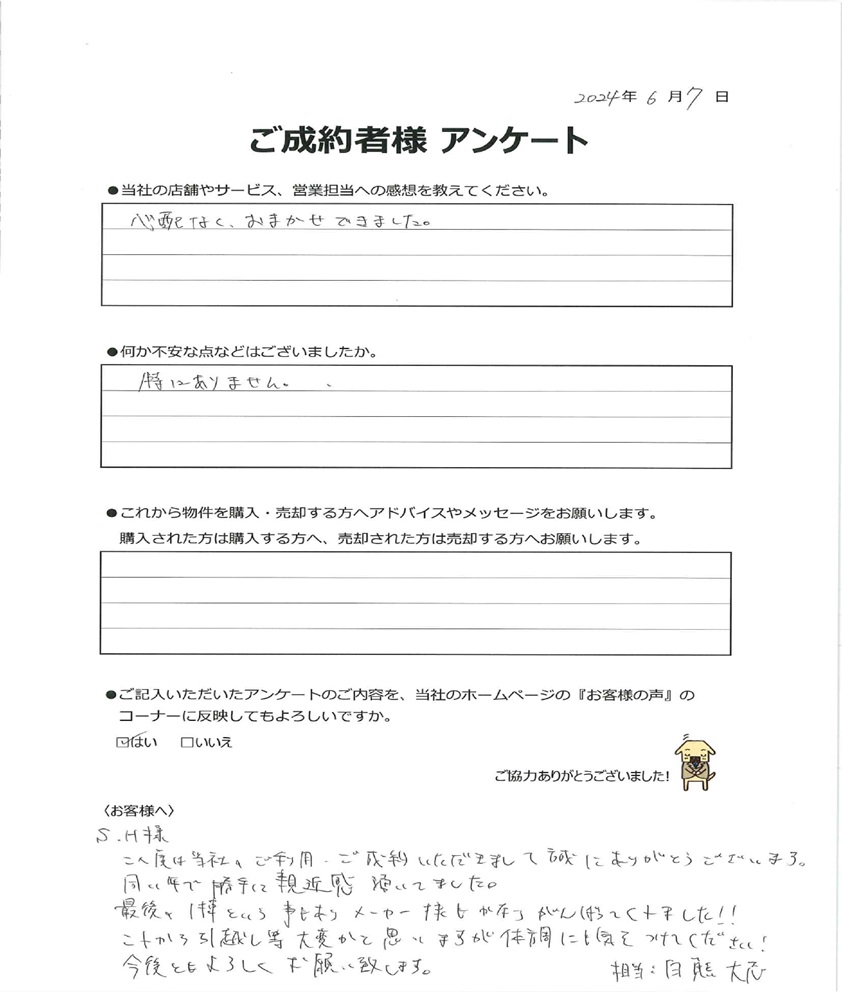 2024年 6月7日
ご成約者様 アンケート
●当社の店舗やサービス、営業担当への感想を教えてください。
心配なく、おまかせできました。
●何か不安な点などはございましたか。
特にありません。
●これから物件を購入・売却する方へアドバイスやメッセージをお願いします。
購入された方は購入する方へ、売却された方は売却する方へお願いします。
●ご記入いただいたアンケートのご内容を、当社のホームページの『お客様の声』の
コーナーに反映してもよろしいですか。
☑はい □いいえ
ご協力ありがとうございました!
〈お客様へ〉
S.H様
この度は当社の ご利用・ご成約いただきまして誠にありがとうございます。
同い年で 勝手に 親近感 頂いてました。
最後の1棟という事もあり メーカー様もかなりがんばってくれました!!
これから引越し等 大変かと思いますが体調にも気をつけてください!
今後ともよろしくお願い致します。
担当: